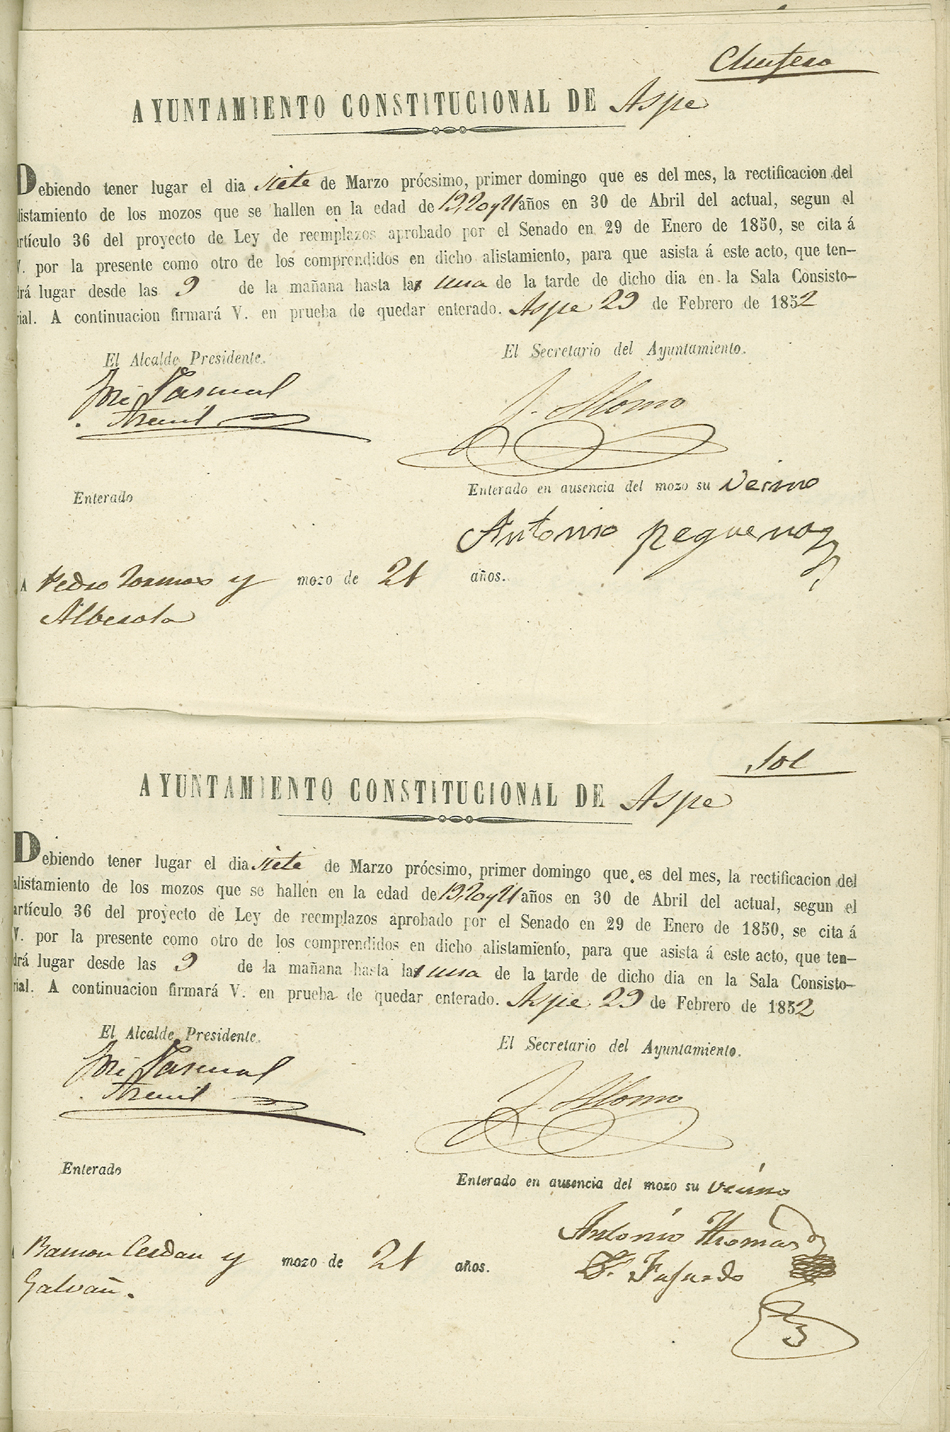 AYUNTAMIENTO CONSTITUCIONAL DE Aspe
Debiendo tener lugar el dia siete de Marzo prócsimo, primer domingo que es del mes, la rectificacion del
alistamiento de los mozos que se hallen en la edad de 19, 20 y 21 años en 30 de Abril del actual, segun el
artículo 36 del proyecto de Ley de reemplazos aprobado por el Senado en 29 de Enero de 1850, se cita á
V. por la presente como otro de los comprendidos en dicho alistamiento, para que asista á este acto, que ten-
drá lugar desde las 9 de la mañana hasta la una de la tarde de dicho dia en la Sala Consisto-
rial. A continuacion firmará V. en prueba de quedar enterado. Aspe 29 de Febrero de 1852
El Alcalde Presidente.
El Secretario del Ayuntamiento.
José Pascual
J. Alonso
Enterado
Enterado en ausencia del mozo su Vecino
Antonio pequenog
A Pedro Tormos y mozo de 21 años.
Alberola
Sol
AYUNTAMIENTO CONSTITUCIONAL DE Aspe
Debiendo tener lugar el dia siete de Marzo prócsimo, primer domingo que es del mes, la rectificacion del
alistamiento de los mozos que se hallen en la edad de 19, 20 y 21 años en 30 de Abril del actual, segun el
artículo 36 del proyecto de Ley de reemplazos aprobado por el Senado en 29 de Enero de 1850, se cita á
V. por la presente como otro de los comprendidos en dicho alistamiento, para que asista á este acto, que ten-
drá lugar desde las 9 de la mañana hasta la una de la tarde de dicho dia en la Sala Consisto-
rial. A continuacion firmará V. en prueba de quedar enterado. Aspe 29 de Febrero de 1852
El Alcalde Presidente.
El Secretario del Ayuntamiento.
José Pascual
J. Alonso
Enterado
Enterado en ausencia del mozo su vecino
Antonio Thomas
A Ramon Cerdan y mozo de 21 años.
Galvañ.